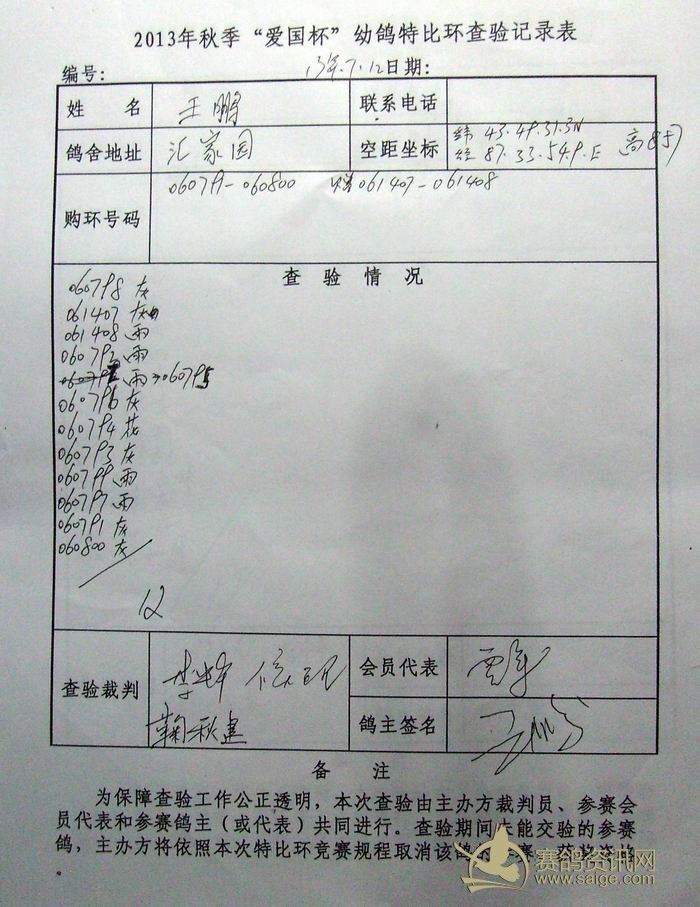 2013年秋季“爱国杯”幼鸽特比环查验记录表
编号： 13年.7.12日期：
姓 名 王鹏 联系电话
鸽舍地址 汇家园 空距坐标 纬 43.49.31.3N 高857
经 87.33.54.9.E
购环号码 060791-060800 061407-061408
查 验 情 况
060798 灰
061407 灰
061408 雨
060792 雨
雨 060795
060796 灰
060794 花
060793 灰
060799 雨
060797 雨
060791 灰
060800 灰
12
查验裁判 会员代表
鞠秋建 鸽主签名
备 注
为保障查验工作公正透明，本次查验由主办方裁判员、参赛会
员代表和参赛鸽主（或代表）共同进行。查验期间未能交验的参赛
鸽，主办方将依照本次特比环竞赛规程取消该鸽的参赛、获奖资格
赛鸽资讯网
www.saige.com